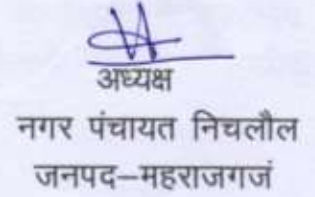 अध्यक्ष
नगर पंचायत निचलौल
जनपद–महराजगजं